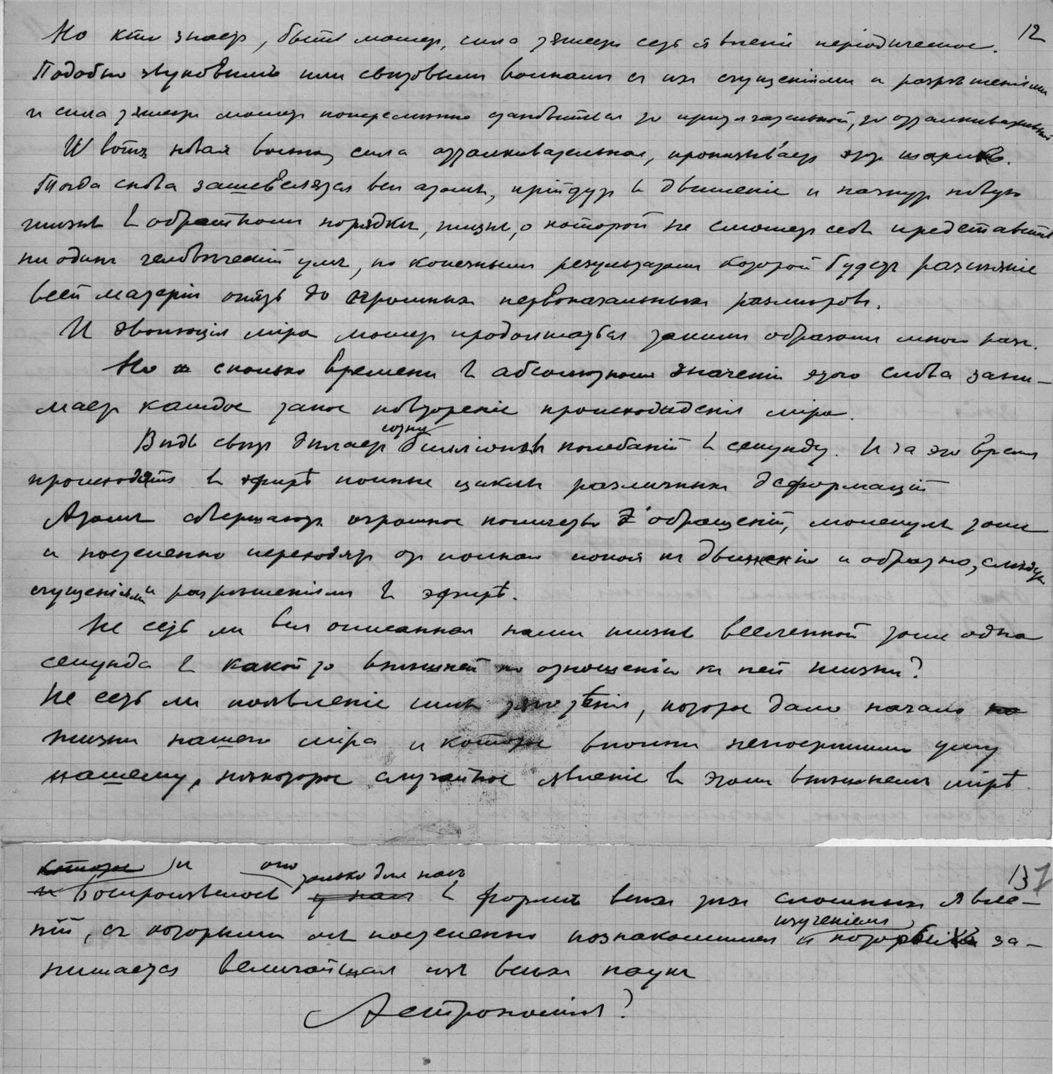 12
Но кто знаетъ, быть можетъ, сила тяжести есть явленіе періодическое.
Подобно звуковымъ или свѣтовымъ волнамъ съ ихъ сгущеніями и разрѣженіями
и сила тяжести можетъ поперемѣнно становиться то притягательной, то отталкивательной
И вотъ новая волна, сила отталкивательная, пронизываетъ этотъ шарикъ.
Тогда снова зашевелятся всѣ атомы, прійдутъ въ движеніе и начнутъ новую
жизнь въ обратномъ порядкѣ, жизнь, о которой не сможетъ себѣ представить
ни одинъ человѣческій умъ, но конечнымъ результатомъ которой будетъ расширеніе
всей матеріи опять до огромныхъ первоначальныхъ размѣровъ.
И эволюція міра можетъ продолжаться такимъ образомъ много разъ.
Но сколько времени въ абсолютномъ значеніи этого слова зани-
маетъ каждое такое повтореніе происхожденія міра.
сотни
Вѣдь свѣтъ дѣлаетъ билліоновъ колебаній въ секунду. И за это время
происходятъ въ эфирѣ полные циклы различныхъ деформацій
Атомы совершаютъ огромное количество обращеній, молекулы тоже
и постепенно переходятъ отъ полнаго покоя къ движенію и обратно, слѣдуя
сгущеніямъ и разрѣженіямъ въ эфирѣ.
Не есть ли вся описанная нами жизнь вселенной тоже одна
секунда въ какой то внѣшней по отношенію къ ней жизни?
Не есть ли появленіе силы тяготѣнія, которое дало начало
жизни нашего міра и которое вполнѣ непостижимо уму
нашему, нѣкоторое случайное явленіе въ этомъ внѣшнемъ мірѣ
13
и оно только для насъ
воспроизвелось въ формѣ всѣхъ тѣхъ сложныхъ явле-
изученіемъ
ній, съ которыми мы постепенно познакомились и которыхъ за-
нимается величайшая изъ всѣхъ наукъ
Астрономія?